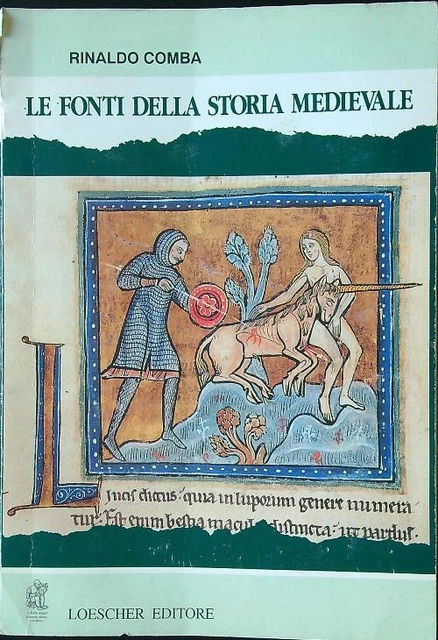 RINALDO COMBA
LE FONTI DELLA STORIA MEDIEVALE
L
Incis dictus: quia in luporum genere numera
tur. Est enim bestia maculis distincta: ut pardus.
LOESCHER EDITORE